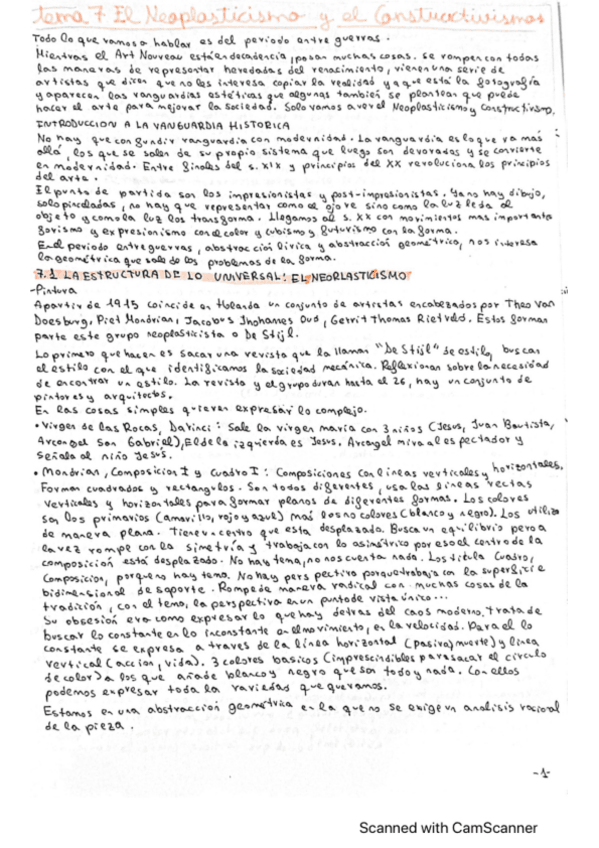 tema 7 El Neoplasticismo y el Constructivismo
Todo lo que vamos a hablar es del periodo entre guerras.
Mientras el Art Nouveau está en decadencia, pasan muchas cosas. Se rompen con todas
las maneras de representar heredadas del renacimiento, vienen una serie de
artistas que dicen que no les interesa copiar la realidad ya que está la fotografía
y aparecen las vanguardias estéticas que algunas también se plantean que puede
hacer el arte para mejorar la sociedad. Solo vamos a ver el Neoplasticismo y Constructivismo.
INTRODUCCION A LA VANGUARDIA HISTORICA
No hay que confundir vanguardia con modernidad. La vanguardia es lo que va mas
allá, los que se salen de su propio sistema que luego son devorados y se convierte
en modernidad. Entre finales del s. XIX y principios del XX revoluciona los principios
del arte.
El punto de partida son los impresionistas y post-impresionistas. Ya no hay dibujo,
solo pinceladas, no hay que representar como el ojo ve sino como la luz le da al
objeto y como la luz los transforma. Llegamos al s. XX con movimientos mas importants
fovismo y expresionismo con el color y cubismo y futurismo con la forma.
En el periodo entre guerras, abstracción lírica y abstracción geométrica, nos interesa
la geométrica que sale de los problemas de la forma.
7.1 LA ESTRUCTURA DE LO UNIVERSAL: EL NEOPLASTICISMO
-Pintura
A partir de 1915 coincide en Holanda un conjunto de artistas encabezados por Theo Van
Doesburg, Piet Mondrian, Jacobus Jhohannes Oud, Gerrit Thomas Rietveld. Estos forman
parte este grupo neoplasticista o De Stijl.
Lo primero que hacen es sacar una revista que la llaman "De Stijl" de estilo, buscan
el estilo con el que identificamos la sociedad mecánica. Reflexionan sobre la necesidad
de encontrar un estilo. La revista y el grupo duran hasta el 26, hay un conjunto de
pintores y arquitectos.
En las cosas simples quieren expresar lo complejo.
• Virgen de las Rocas, Da Vinci: Sale la virgen maría con 3 niños (Jesus, Juan Bautista,
Arcangel San Gabriel), El de la izquierda es Jesus. Arcangel mira al espectador y
Señala al niño Jesus.
• Mondrian, Composicion I y Cuadro I: Composiciones con lineas verticales y horizontales.
Forman cuadrados y rectangulos. Son todos diferentes, usa las lineas rectas
verticales y horizontales para formar planos de diferentes formas. Los colores
son los primarios (amarillo, rojo y azul) más los no colores (blanco y negro). Los utiliza
de manera plana. Tiene un centro que esta desplazado. Busca un equilibrio pero a
la vez rompe con la simetría y trabaja con lo asimétrico por eso el centro de la
composición está desplazado. No hay tema, no nos cuenta nada. Los titula Cuadro,
Composicion, porque no hay tema. No hay perspectiva porque trabaja con la superficie
bidimensional de soporte. Rompe de manera radical con muchas cosas de la
tradición, con el tema, la perspectiva en un punto de vista único...
Su obsesión era como expresar lo que hay detras del caos moderno, trata de
buscar lo constante en lo inconstante en el movimiento, en la velocidad. Para el lo
constante se expresa a traves de la línea horizontal (pasiva, muerte) y línea
vertical (accion, vida). 3 colores basicos (imprescindibles para sacar el circulo
de color) a los que añade blanco y negro que son todo y nada. Con ellos
podemos expresar toda la variedad que queramos.
Estamos en una abstracción geométrica en la que no se exige un analisis racional
de la pieza.
-1-
Scanned with CamScanner